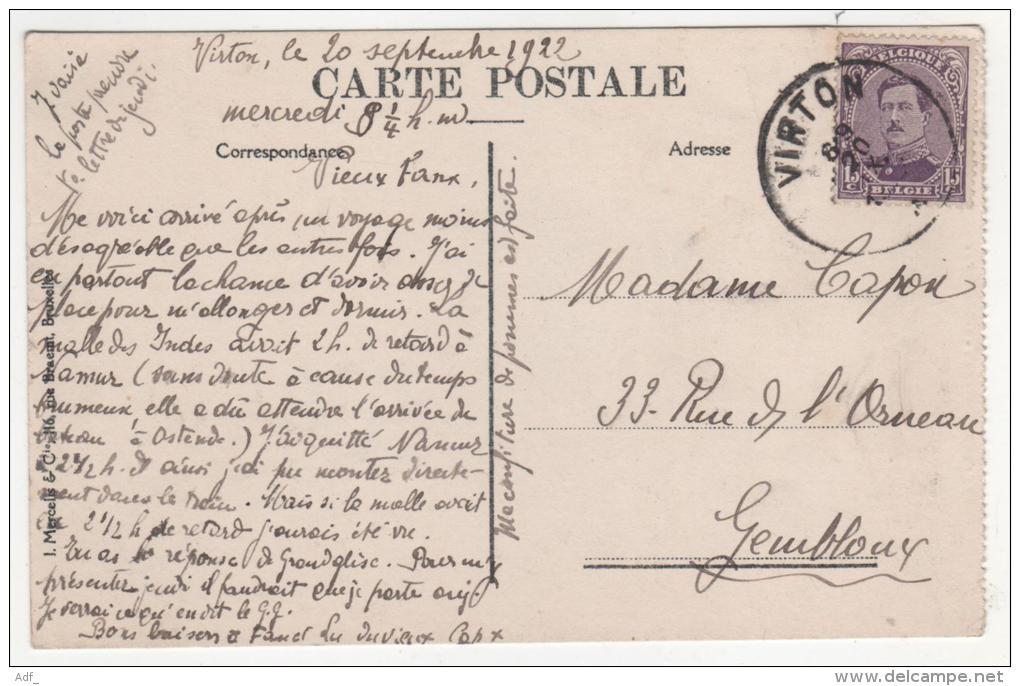 Virton, le 20 septembre 1922
CARTE POSTALE
mercredi 8 1/4 h. m
Correspondance
Adresse
J'irai à
la poste prendre
ta lettre de jeudi.
Vieux Fanx,
Me voici arrivé après un voyage moins
désagréable que les autres fois. J'ai
eu partout la chance d'avoir assez de
place pour m'allonger et dormir. La
malle des Indes avait 2 h. de retard à
Namur (sans doute à cause du temps
brumeux elle a dû attendre l'arrivée du
bateau à Ostende.) J'ai quitté Namur
à 2 1/2 h. Et ainsi j'ai pu monter directe-
ment dans le train. Mais si la malle avait
eu 2 1/2 h de retard j'aurais été
Tu as la réponse de Grandglise. Pour m'y
présenter jeudi il faudrait que je parte
Je verrai ce qu'en dit le G.J.
Bons baisers à Fanct Lu du vieux Capx
Ma confiture de pommes est faite.
I. Mercelis & Cie, 116, rue Braemt, Bruxelles
BELGIQUE
15 c
15 c
BELGIE
VIRTON
Madame Capon
33 - Rue de l'Orneau
Gembloux
Adf_